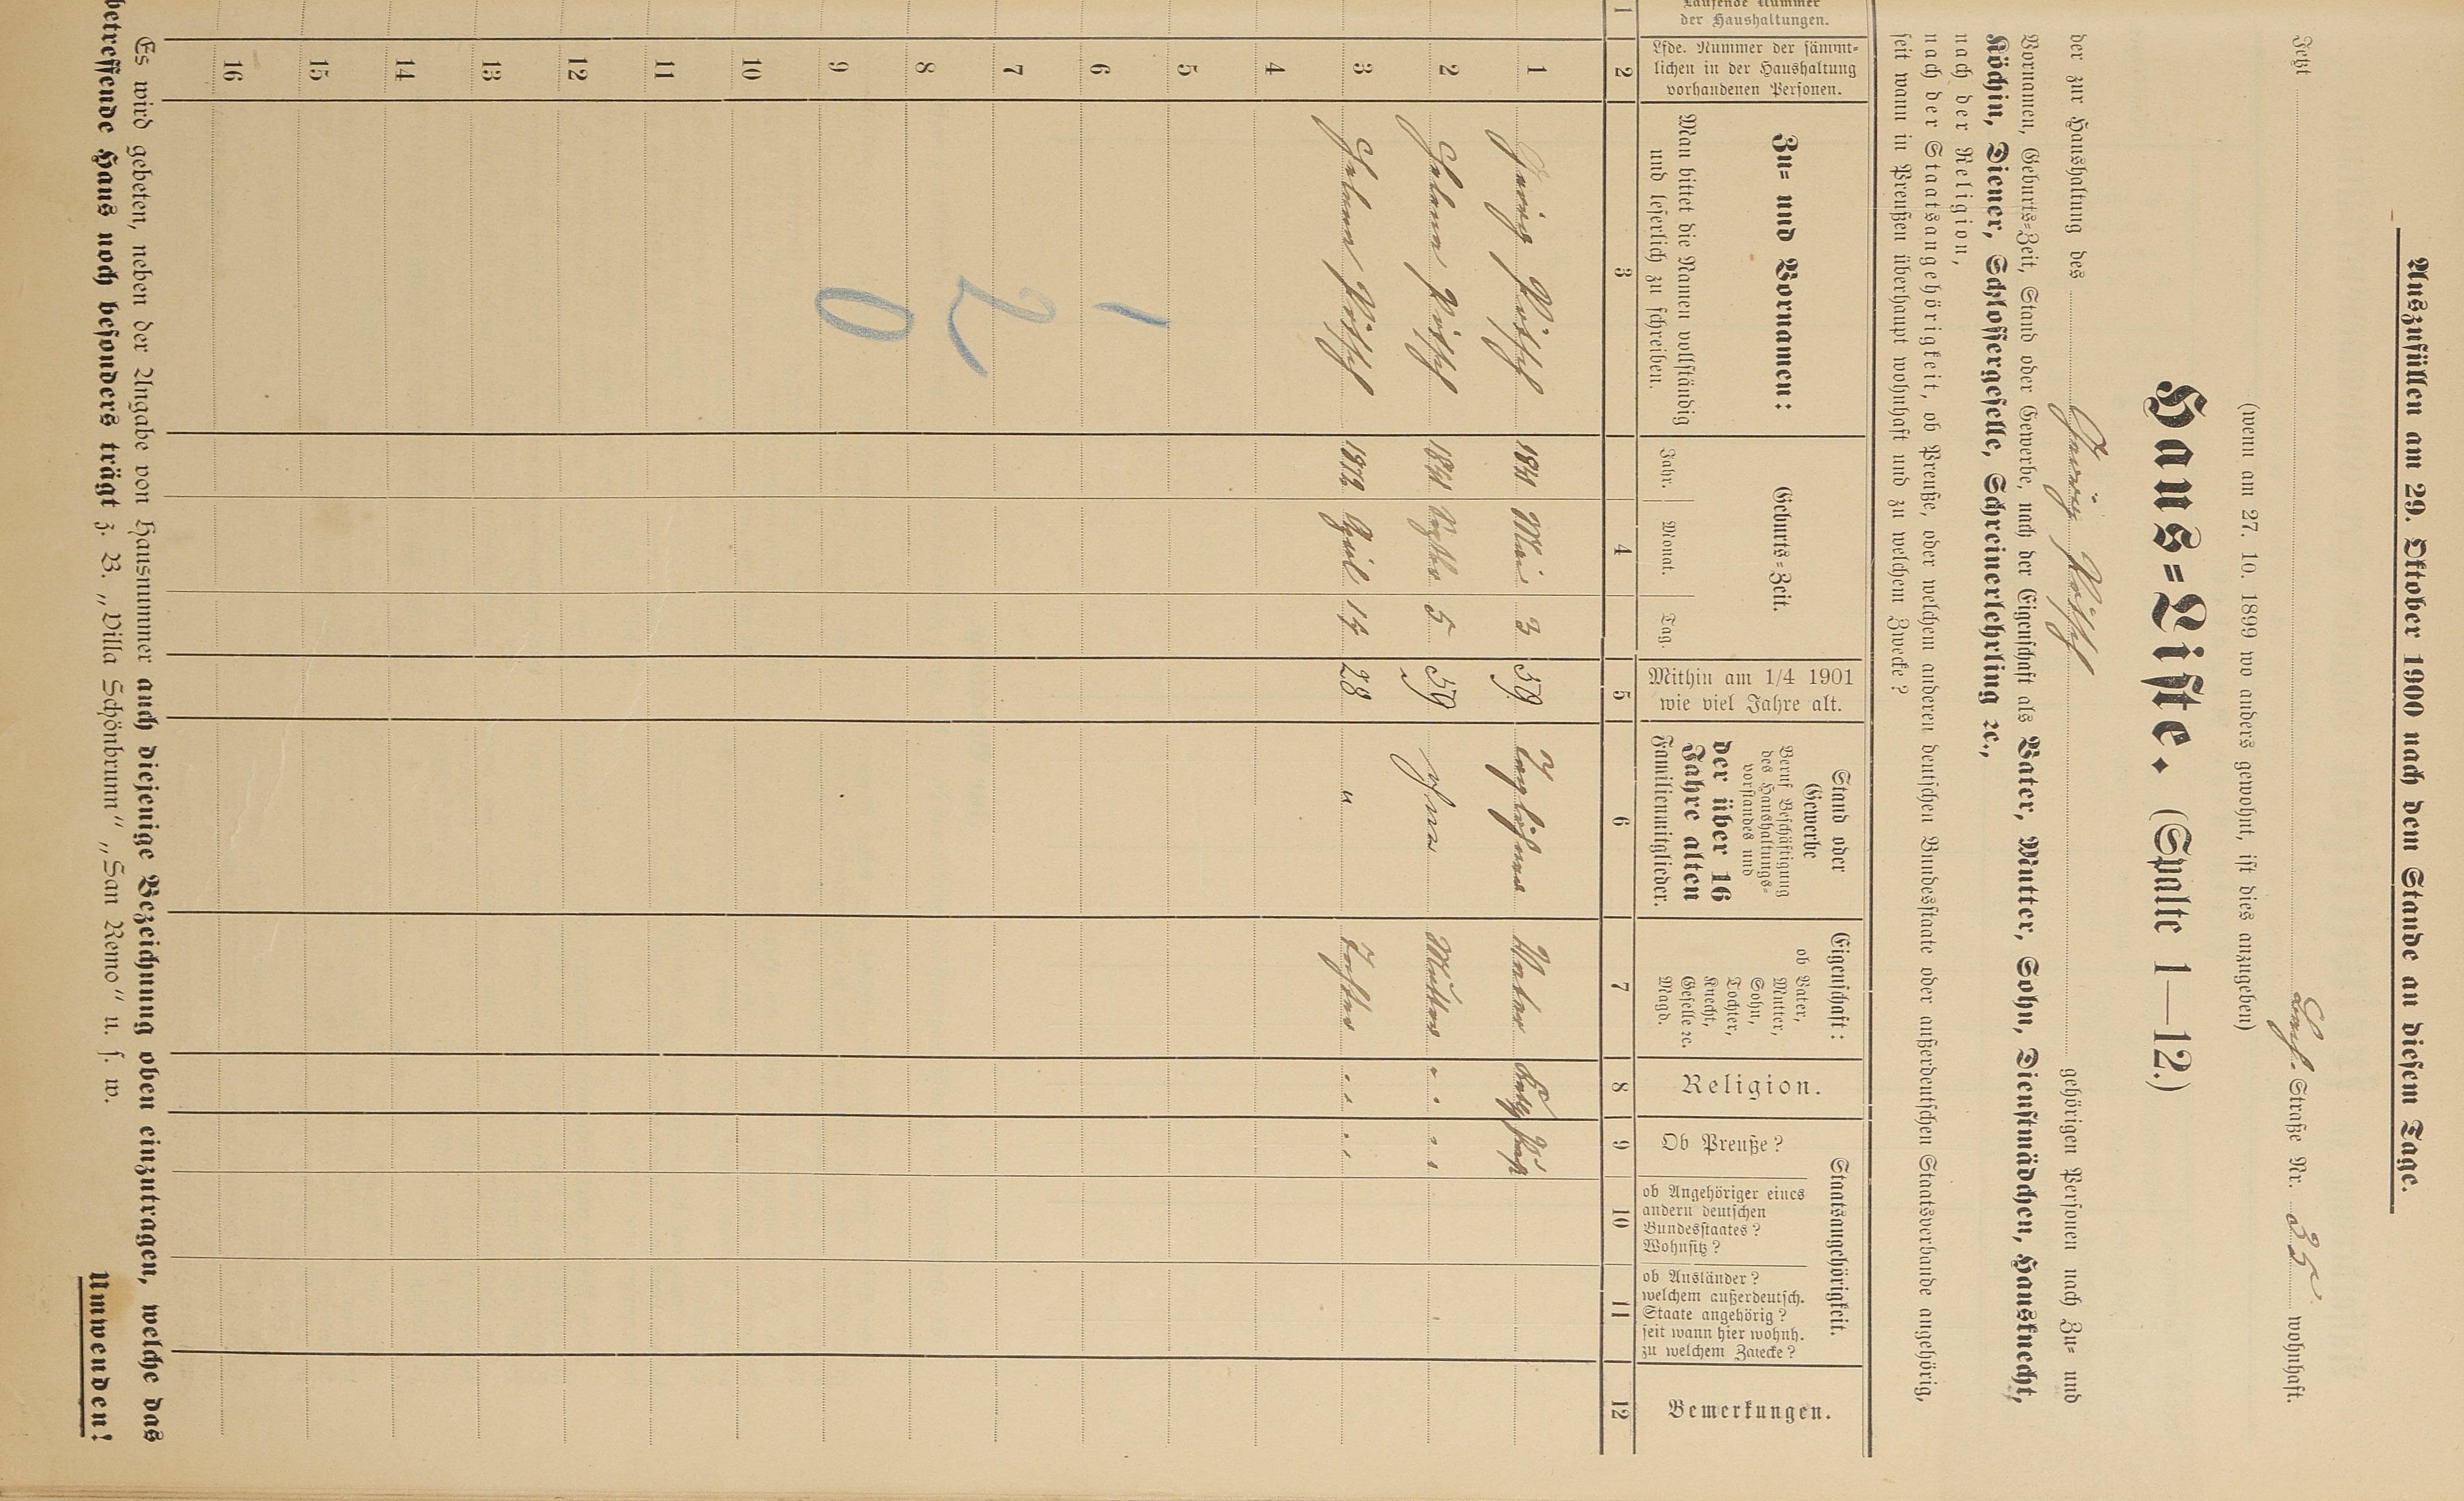 Auszufüllen am 29. Oktober 1900 nach dem Stande an diesem Tage.
Jetzt Straße Nr. 35 wohnhaft.
(wenn am 27. 10. 1899 wo anders gewohnt, ist dies anzugeben)
Haus=Liste. (Spalte 1—12.)
der zur Haushaltung des gehörigen Personen nach Zu= und
Vornamen, Geburts=Zeit, Stand oder Gewerbe, nach der Eigenschaft als Vater, Mutter, Sohn, Dienstmädchen, Hausknecht,
Köchin, Diener, Schlossergeselle, Schreinerlehrling ꝛc.,
nach der Religion,
nach der Staatsangehörigkeit, ob Preuße, oder welchen anderen deutschen Bundesstaate oder außerdeutschen Staatsverbande angehörig,
seit wann in Preußen überhaupt wohnhaft und zu welchem Zwecke?
Laufende Nummer
der Haushaltungen.
Lfde. Nummer der sämmt=
lichen in der Haushaltung
vorhandenen Personen.
Zu= und Vornamen:
Man bittet die Namen vollständig
und leserlich zu schreiben.
Geburts=Zeit.
Jahr. Monat. Tag.
Mithin am 1/4 1901
wie viel Jahre alt.
Stand oder
Gewerbe
Beruf Beschäftigung
des Haushaltungs=
vorstandes und
der über 16
Jahre alten
Familienmitglieder.
Eigenschaft:
ob Vater,
Mutter,
Sohn,
Tochter,
Knecht,
Geselle ꝛc.
Magd.
Religion.
Staatsangehörigkeit.
Ob Preuße?
ob Angehöriger eines
andern deutschen
Bundesstaates?
Wohnsitz?
ob Ausländer?
welchem außerdeutsch.
Staate angehörig?
seit wann hier wohnh.
zu welchem Zwecke?
Bemerkungen.
1 2 3 4 5 6 7 8 9 10 11 12
1 1841 Mai 3 59 Taglöhner Vater Kath Preuß
2 1841 5 59 ohne Mutter " "
3 1872 April 14 28 " Tochter " "
4
5
6 1
7
8 2
9 0
10
11
12
13
14
15
16
Es wird gebeten, neben der Angabe von Hausnummer auch diejenige Bezeichnung oben einzutragen, welche das
betreffende Haus noch besonders trägt z. B. „Villa Schönbrunn" „San Remo" u. s. w.
Umwenden!